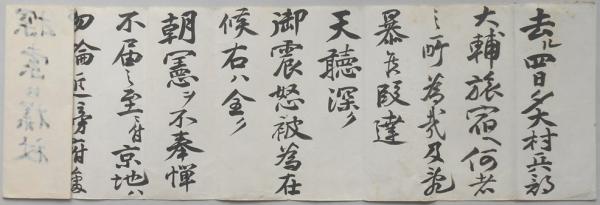 去ル四日夕大村兵部
大輔旅宿ヘ何者
之所為哉及乱
暴候段達
天聴深ク
御震怒被為在
候右ハ全ク
朝憲ヲ不奉憚
不届之至ニ付京地ハ
勿論近傍府